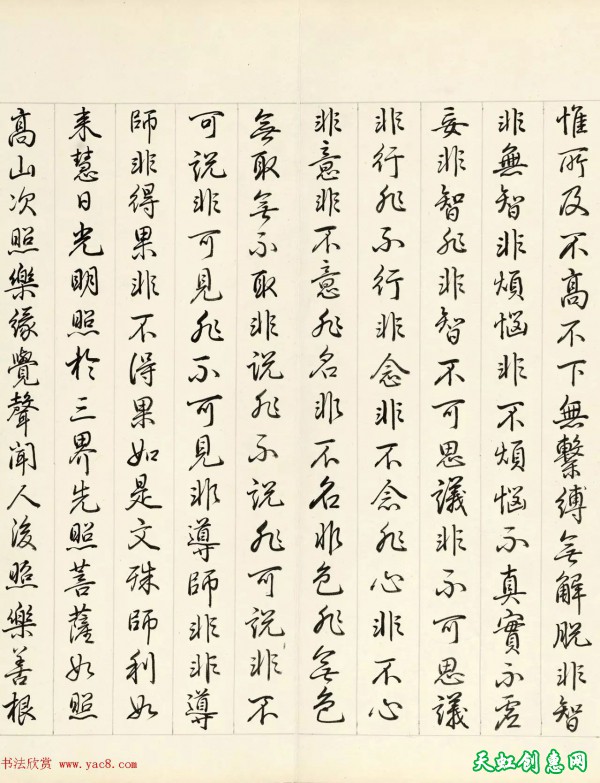 惟所及不高不下無繫縛無解脫非智
非無智非煩惱非不煩惱不真實不虛
妄非智非非智不可思議非不可思議
非行非不行非念非不念非心非不心
非意非不意非名非不名非色非無色
無取無不取非說非不說非可說非不
可說非可見非不可見非導師非非導
師非得果非不得果如是文殊師利如
来慧日光明照於三界先照菩薩如照
高山次照樂緣覺聲聞人後照樂善根
书法欣赏 www.yac8.com
天虹创惠网